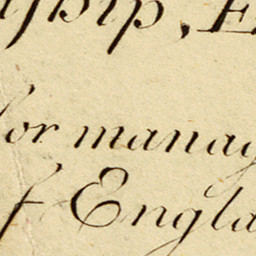 ship, E
for manag
f Engla